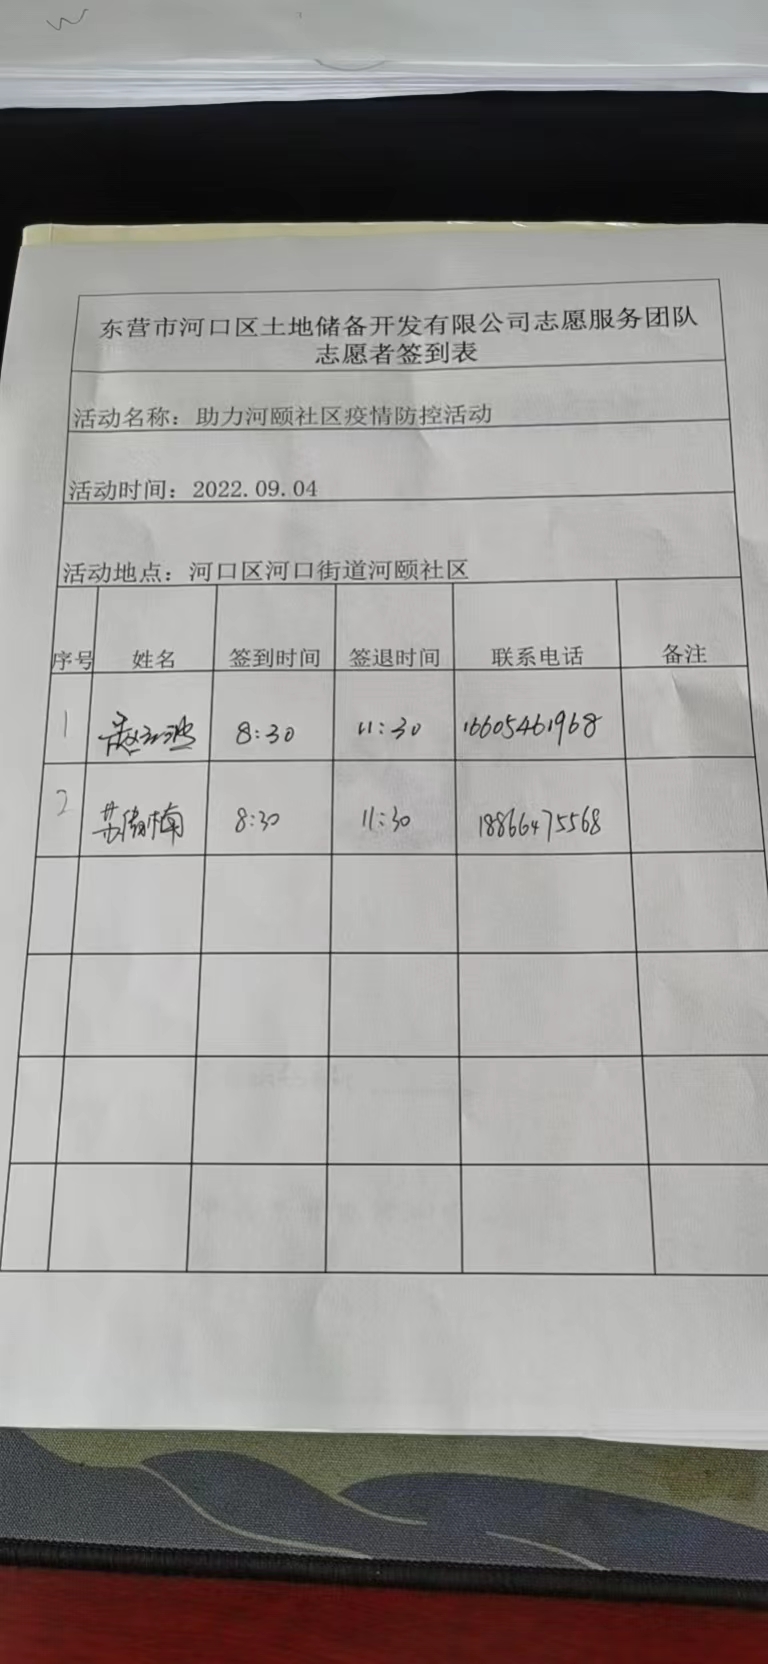 东营市河口区土地储备开发有限公司志愿服务团队
志愿者签到表
活动名称：助力河颐社区疫情防控活动
活动时间：2022.09.04
活动地点：河口区河口街道河颐社区
序号 姓名 签到时间 签退时间 联系电话 备注
1 8:30 11:30 16605461968
2 苏 楠 8:30 11:30 18866475568